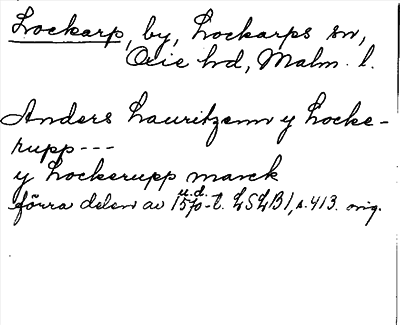 Lockarp, by, Lockarps sn,
Oxie hd, Malm. l.
Anders Lauritzenn y Locke-
rupp ---
y Lockerupp marck
u.d.
förra delen av 1570-t. LSLB1, s. 413. orig.